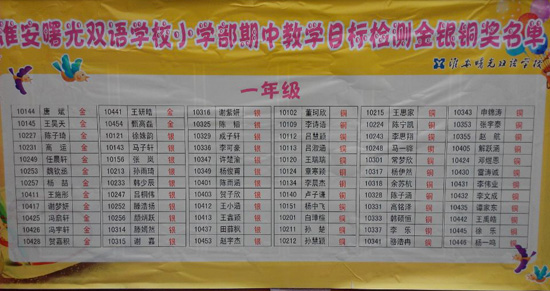 淮安曙光双语学校小学部期中教学目标检测金银铜奖名单
淮安曙光双语学校
一年级
10144 唐斌 金 10441 王妍皓 金 10316 谢紫妍 银 10102 董珂欣 铜 10215 王思家 铜 10343 申锦涛 铜
10145 王昊天 金 10454 甄高磊 金 10325 陈韬 银 10109 李诗语 铜 10224 陈宁凯 铜 10353 张宇泰 铜
10227 陈子琦 金 10121 徐雏韵 银 10329 成子轩 银 10111 吕慧颖 铜 10243 李思翔 铜 10355 赵航 铜
10231 高涵 金 10143 马子轩 银 10336 李可豪 银 10113 吕淑涵 铜 10248 马一 铜 10405 解跃涵 铜
10249 任晨轩 金 10156 张岚 银 10347 许楚渝 银 10120 王瑞瑞 铜 10301 常梦欣 铜 10424 邓煜恩 铜
10252 魏钦涵 金 10213 孙雨琦 银 10349 杨俊甫 银 10124 章寒颖 铜 10317 杨伊然 铜 10430 董涛诚 铜
10257 杨喆 金 10233 韩少辰 银 10401 陈雨涵 银 10134 李昊杰 铜 10318 余苏杭 铜 10431 李伟业 铜
10411 王施彤 金 10242 吕桐伟 银 10403 贺子欣 银 10140 卢子谦 铜 10328 陈子涵 铜 10432 李文成 铜
10417 谢梦妍 金 10252 滕浩杨 银 10412 王小涵 银 10151 杨中飞 铜 10331 高铭泽 铜 10435 谭家东 铜
10425 冯启轩 金 10256 颜炳跃 银 10413 王鑫颖 银 10201 白瑋栎 铜 10333 韩硕恒 铜 10442 王禹皓 铜
10426 冯宇轩 金 10314 滕嫣然 银 10437 田薛枫 银 10211 孙楚 铜 10337 李乐 铜 10445 徐乐 铜
10428 贺慕枳 金 10315 谢鑫 银 10453 赵宇杰 银 10212 孙慧颖 铜 10341 骆浩冉 铜 10448 杨一鸣 铜